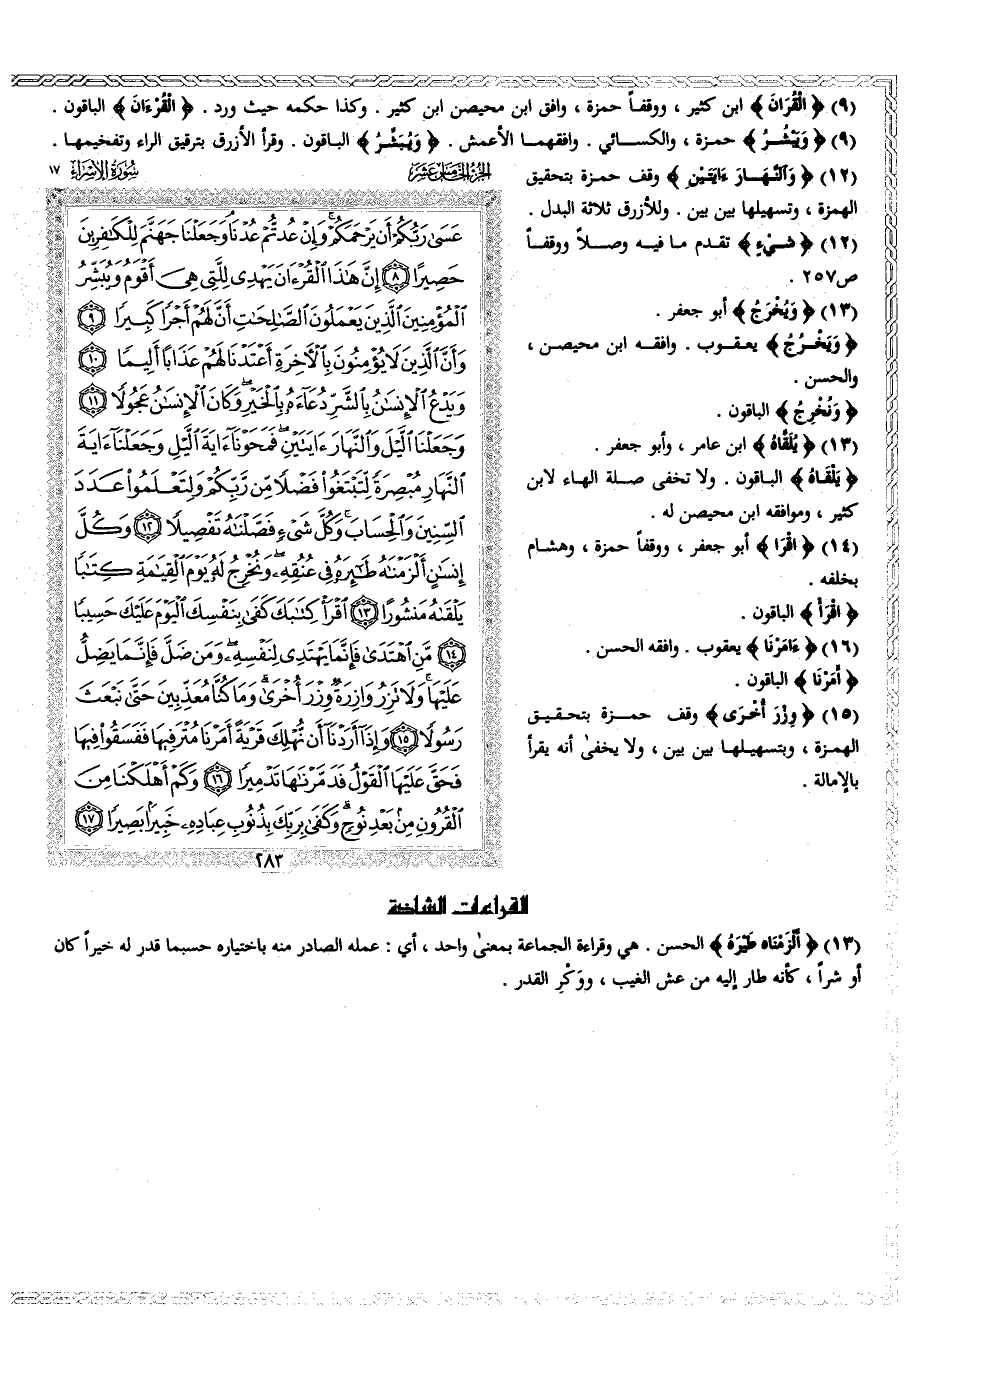 (٩) ﴿ الْقُرَانَ ﴾ ابن كثير ، ووقفاً حمزة ، وافق ابن محيصن ابن كثير . وكذا حكمه حيث ورد . ﴿ الْقُرْءَانَ ﴾ الباقون .
(٩) ﴿ وَيَبْشُرُ ﴾ حمزة ، والكسائي . وافقهما الأعمش . ﴿ وَيُبَشِّرُ ﴾ الباقون . وقرأ الأزرق بترقيق الراء وتفخيمها .
(١٢) ﴿ وَالنَّهَارَ ءَايَتَيْنِ ﴾ وقف حمزة بتحقيق
الهمزة ، وتسهيلها بين بين . وللأزرق ثلاثة البدل .
(١٢) ﴿ شَيْءٍ ﴾ تقدم ما فيه وصلاً ووقفاً
ص٢٥٧ .
(١٣) ﴿ وَيُخْرَجُ ﴾ أبو جعفر .
﴿ وَيَخْرُجُ ﴾ يعقوب . وافقه ابن محيصن ،
والحسن .
﴿ وَنُخْرِجُ ﴾ الباقون .
(١٣) ﴿ يُلَقَّاهُ ﴾ ابن عامر ، وأبو جعفر .
﴿ يَلْقَاهُ ﴾ الباقون . ولا تخفى صلة الهاء لابن
كثير ، وموافقه ابن محيصن له .
(١٤) ﴿ اقْرَا ﴾ أبو جعفر ، ووقفاً حمزة ، وهشام
بخلفه .
﴿ اقْرَأْ ﴾ الباقون .
(١٦) ﴿ ءَامَرْنَا ﴾ يعقوب . وافقه الحسن .
﴿ أَمَرْنَا ﴾ الباقون .
(١٥) ﴿ وِزْرَ أُخْرَى ﴾ وقف حمزة بتحقيق
الهمزة ، وبتسهيلها بين بين ، ولا يخفىٰ أنه يقرأ
بالإمالة .
الجزء الخامس عشر
سورة الإسراء ١٧
عَسَىٰ رَبُّكُمْ أَن يَرْحَمَكُمْ ۚ وَإِنْ عُدتُّمْ عُدْنَا ۘ وَجَعَلْنَا جَهَنَّمَ لِلْكَٰفِرِينَ
حَصِيرًا ٨ إِنَّ هَٰذَا ٱلْقُرْءَانَ يَهْدِى لِلَّتِى هِىَ أَقْوَمُ وَيُبَشِّرُ
ٱلْمُؤْمِنِينَ ٱلَّذِينَ يَعْمَلُونَ ٱلصَّٰلِحَٰتِ أَنَّ لَهُمْ أَجْرًا كَبِيرًا ٩
وَأَنَّ ٱلَّذِينَ لَا يُؤْمِنُونَ بِٱلْءَاخِرَةِ أَعْتَدْنَا لَهُمْ عَذَابًا أَلِيمًا ١٠
وَيَدْعُ ٱلْإِنسَٰنُ بِٱلشَّرِّ دُعَآءَهُۥ بِٱلْخَيْرِ ۖ وَكَانَ ٱلْإِنسَٰنُ عَجُولًا ١١
وَجَعَلْنَا ٱلَّيْلَ وَٱلنَّهَارَ ءَايَتَيْنِ ۖ فَمَحَوْنَآ ءَايَةَ ٱلَّيْلِ وَجَعَلْنَآ ءَايَةَ
ٱلنَّهَارِ مُبْصِرَةً لِّتَبْتَغُوا۟ فَضْلًا مِّن رَّبِّكُمْ وَلِتَعْلَمُوا۟ عَدَدَ
ٱلسِّنِينَ وَٱلْحِسَابَ ۚ وَكُلَّ شَىْءٍ فَصَّلْنَٰهُ تَفْصِيلًا ١٢ وَكُلَّ
إِنسَٰنٍ أَلْزَمْنَٰهُ طَٰٓئِرَهُۥ فِى عُنُقِهِۦ ۖ وَنُخْرِجُ لَهُۥ يَوْمَ ٱلْقِيَٰمَةِ كِتَٰبًا
يَلْقَىٰهُ مَنشُورًا ١٣ ٱقْرَأْ كِتَٰبَكَ كَفَىٰ بِنَفْسِكَ ٱلْيَوْمَ عَلَيْكَ حَسِيبًا
١٤ مَّنِ ٱهْتَدَىٰ فَإِنَّمَا يَهْتَدِى لِنَفْسِهِۦ ۖ وَمَن ضَلَّ فَإِنَّمَا يَضِلُّ
عَلَيْهَا ۚ وَلَا تَزِرُ وَازِرَةٌ وِزْرَ أُخْرَىٰ ۗ وَمَا كُنَّا مُعَذِّبِينَ حَتَّىٰ نَبْعَثَ
رَسُولًا ١٥ وَإِذَآ أَرَدْنَآ أَن نُّهْلِكَ قَرْيَةً أَمَرْنَا مُتْرَفِيهَا فَفَسَقُوا۟ فِيهَا
فَحَقَّ عَلَيْهَا ٱلْقَوْلُ فَدَمَّرْنَٰهَا تَدْمِيرًا ١٦ وَكَمْ أَهْلَكْنَا مِنَ
ٱلْقُرُونِ مِنۢ بَعْدِ نُوحٍ ۗ وَكَفَىٰ بِرَبِّكَ بِذُنُوبِ عِبَادِهِۦ خَبِيرًۢا بَصِيرًا ١٧
٢٨٣
القراءات الشاذة
(١٣) ﴿ أَلْزَمْنَاه طَيْرَهُ ﴾ الحسن . هي وقراءة الجماعة بمعنىٰ واحد ، أي : عمله الصادر منه باختياره حسبما قدر له خيراً كان
أو شراً ، كأنه طار إليه من عش الغيب ، ووَكْرِ القدر .